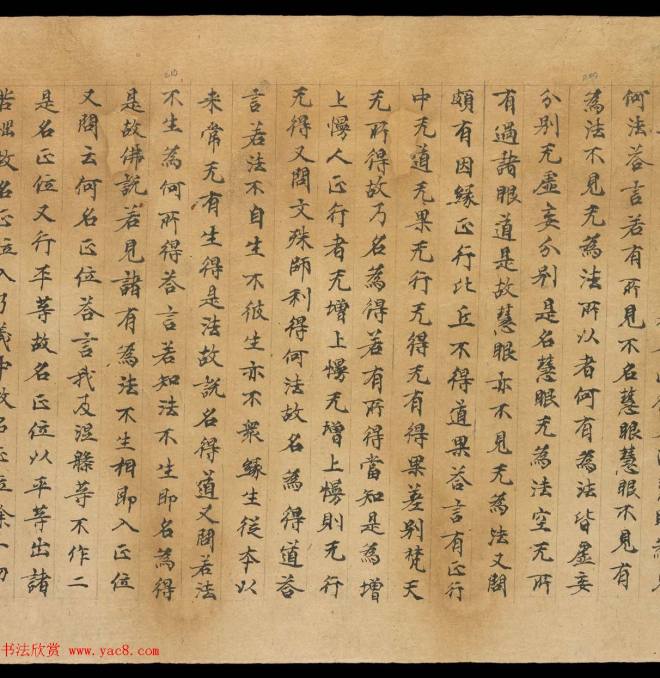 何法荅言若有所見不名慧眼慧眼不見有
為法不見无為法所以者何有為法皆虛妄
分别无虛妄分别是名慧眼无為法空无所
有過諸眼道是故慧眼亦不見无為法又問
頗有因緣正行比丘不得道果荅言有正行
中无道无果无行无得无有得果差别梵天
无所得故乃名為得若有所得當知是為增
上慢人正行者无增上慢无增上慢則无行
无得又問文殊師利得何法故名為得道荅
言若法不自生不彼生亦不衆緣生從本以
来常无有生得是法故說名得道又問若法
不生為何所得荅言若知法不生即名為得
是故佛說若見諸有為法不生相即入正位
又問云何名正位荅言我及涅槃等不作二
是名正位又行平等故名正位以平等出諸
苦惱故名正位入了義中故名正位除一切
书法欣赏 www.yac8.com